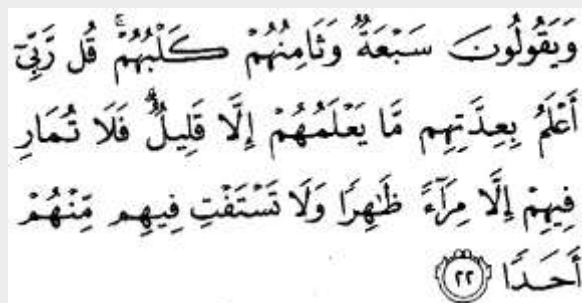 وَيَقُولُونَ سَبْعَةٌ وَثَامِنُهُمْ كَلْبُهُمْ ۚ قُل رَّبِّىٓ
أَعْلَمُ بِعِدَّتِهِم مَّا يَعْلَمُهُمْ إِلَّا قَلِيلٌ ۗ فَلَا تُمَارِ
فِيهِمْ إِلَّا مِرَآءً ظَٰهِرًا وَلَا تَسْتَفْتِ فِيهِم مِّنْهُمْ
أَحَدًا ٢٢